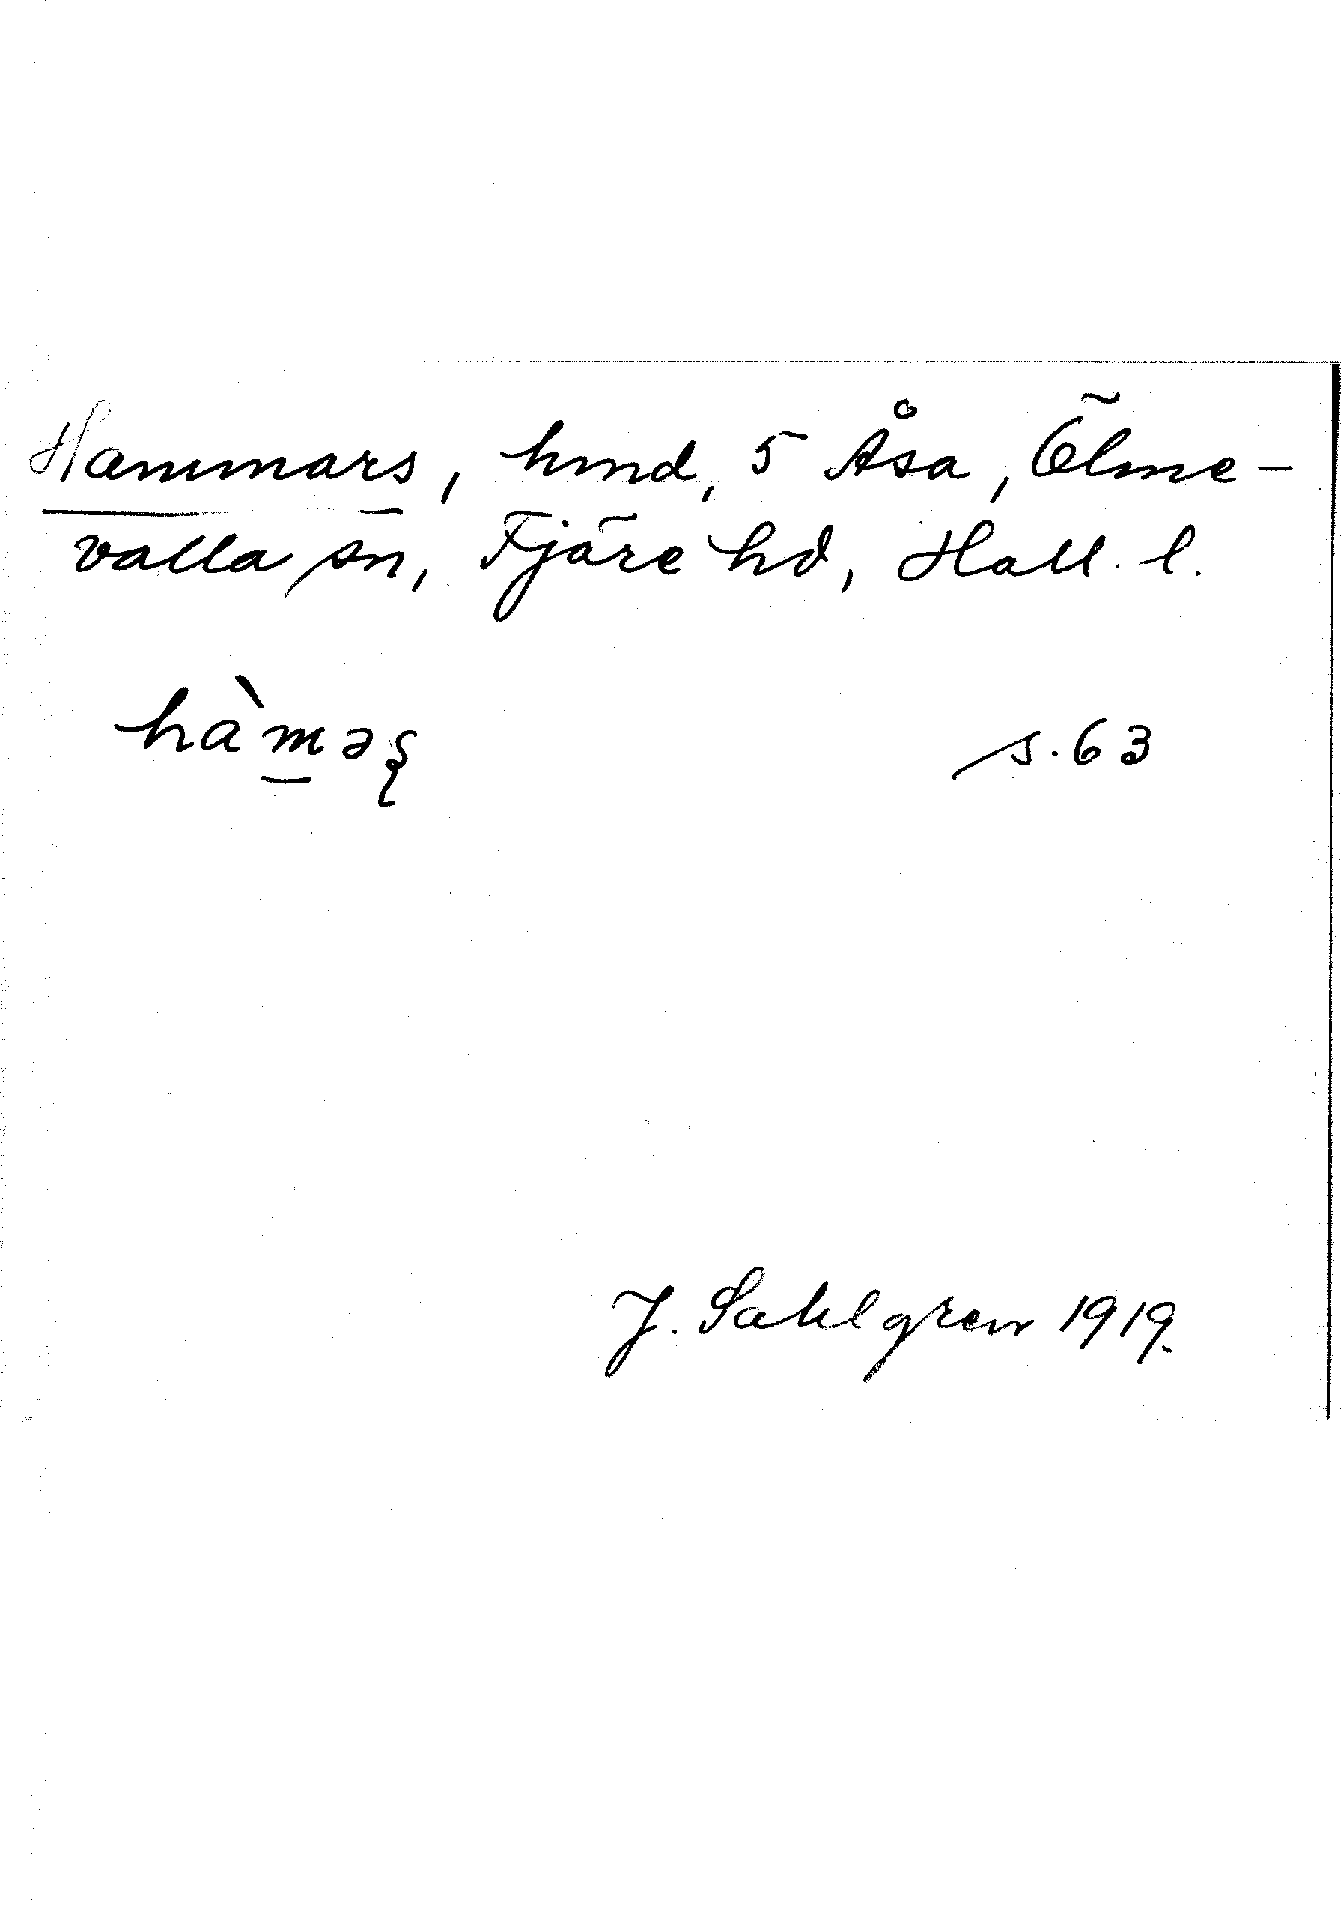 Hammars, hmd, 5 Åsa, Ölme-
valla sn, Fjäre hd, Hall. l.
hàm̲əʂ s. 63
J. Sahlgren 1919.